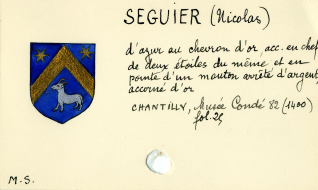 SEGUIER (Nicolas)
d'azur au chevron d'or acc. en chef
de deux étoiles du même et en
pointe d'un mouton arrêté d'argent
accorné d'or
CHANTILLY, Musée Condé 82 (1400)
fol. 25
M.S.